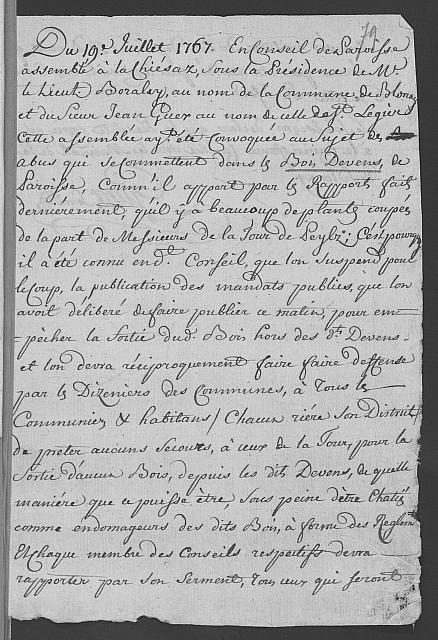 79
Du 19e. Juillet 1767. En Conseil de Paroisse
assemblé à la Chiésaz, sous la Présidence de Mr.
le Lieut. Boraley, au nom de la Commune de Blonay
et du Sieur Jean Guex au nom de celle de St. Legier
Cette assemblée ayt. été Convoquée au Sujet des
abus qui se Commettent dans les Bois Devens, de
Paroisse, Comm'il appert par les Rapports faits
derniérement, qu'il y a beaucoup de plantes coupées
de la part de Messieurs de la Tour de Peylz; C'est pourquoy
il a été connu en d. Conseil, que l'on suspend pour
le coup, la publication des mandats publics, que l'on
avoit délibéré de faire publier ce matin, pour em-
pêcher la Sortie dud. Bois hors des dts. Devens-
et l'on devra réciproquement faire faire deffense
par les Dizeniers des Communes, à Tous les
Communiers & habitans / Chacun riére Son District/
de preter aucuns Secours, à ceux de la Tour, pour la
Sortie d'aucun Bois, depuis les dits Devens, de quelle
maniére que ce puisse être, sous peine d'être Chatiés
comme endomageurs des dits Bois, à forme des Reglemts.
Et Chaque membre des Conseils respectifs devra
rapporter par Son Serment, Tous ceux qui seront